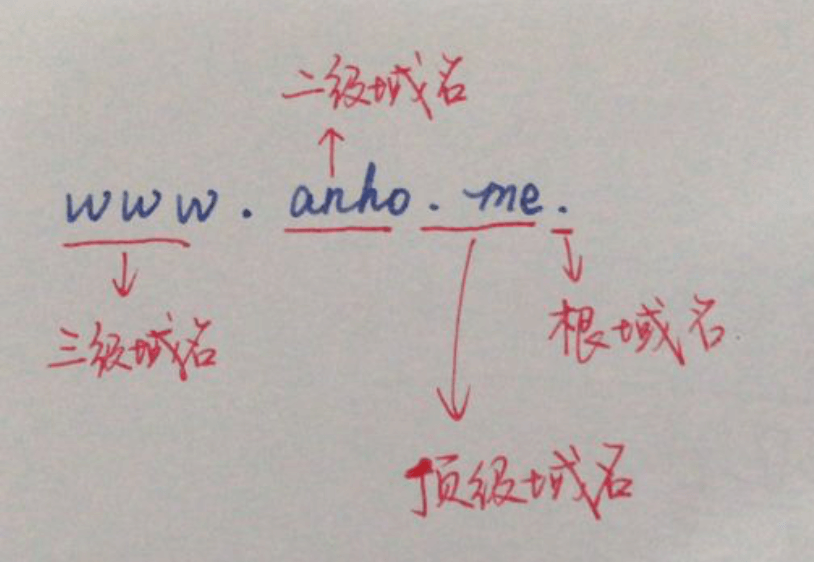 二级域名
www.anho.me.
三级域名
根域名
顶级域名